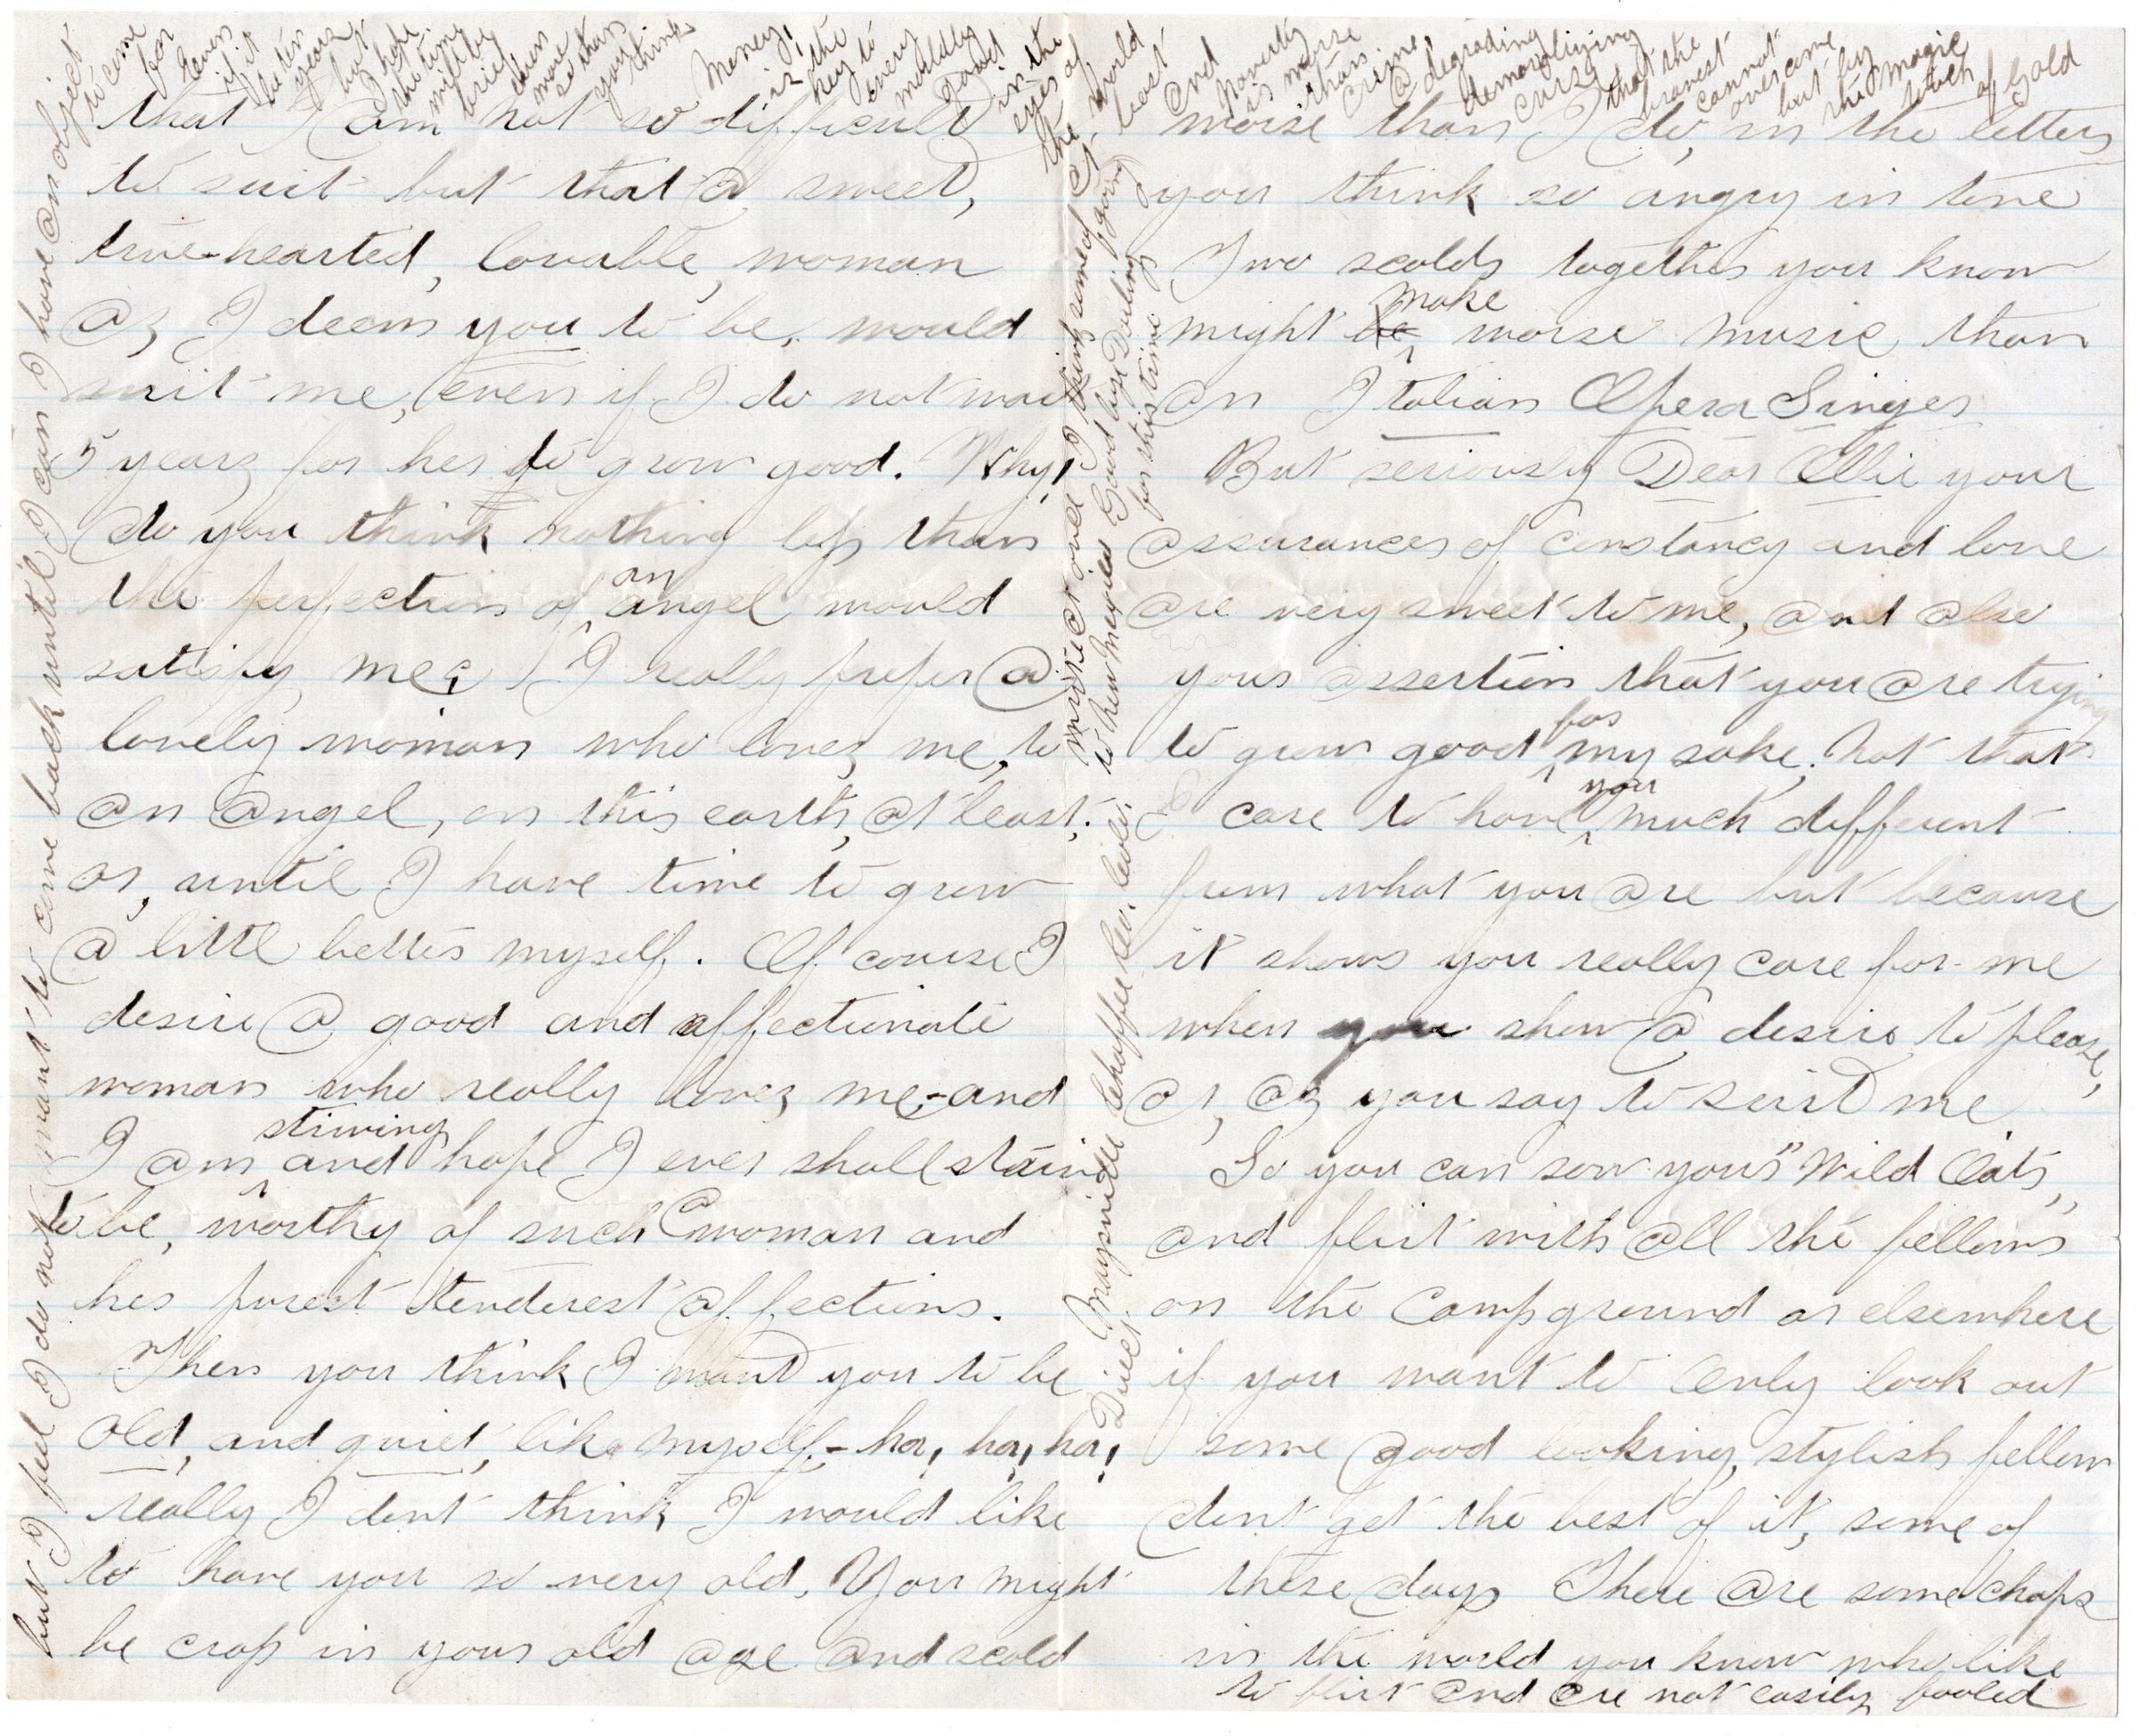 that I am not so difficult
to suit but that a sweet,
true-hearted, lovable, woman
as, I deem you to be, would
suit me, even if I do not wait
5 years for her to grow good. Why,
do you think nothing less than
the perfection of an angel would
satisfy me? I really prefer a
lovely woman who loves me, to
an angel, on this earth, at least,
or, until I have time to grow
a little better myself. Of course I
desire a good and affectionate
woman who really loves me - and
I am striving and hope I ever shall strive
to be, worthy of such a woman and
her purest tenderest affections.
Then you think I want you to be
old, and quiet, like myself, - ha, ha, ha!
really I dont think I would like
to have you so very old. You might
be cross in your old age and scold
worse than I do, in the letters
you think so angry in tone
Two scolds together you know
might be make worse music than
an Italian Opera Singer
But seriously Dear Ollie your
assurances of constancy and love
are very sweet to me, and also
your assertion that you are trying
to grow good for my sake. Not that
I care to have you much different
from what you are but because
it shows you really care for me
when you show a desire to please,
or, as you say to suit me
So you can sow your "Wild Oats"
and flirt with all the fellows
on the Camp ground or elsewhere
if you want to Only look out
some good looking, stylish fellow
dont get the best of it, some of
these days There are some chaps
in the world you know who like
to flirt and are not easily fooled
but I feel I do not want to come back until I can I have an object
to come for even if it be ten years but I hope the time will be brief even more so than you think
Money, is the key to every worldly good in the eyes of the world at least
and poverty is worse than crime, a degrading demoralizing curse that the bravest cannot overcome but by the magic touch of Gold
write at once I think some of going
to then Good bye Darling
for this time
Direct Maysville Co.